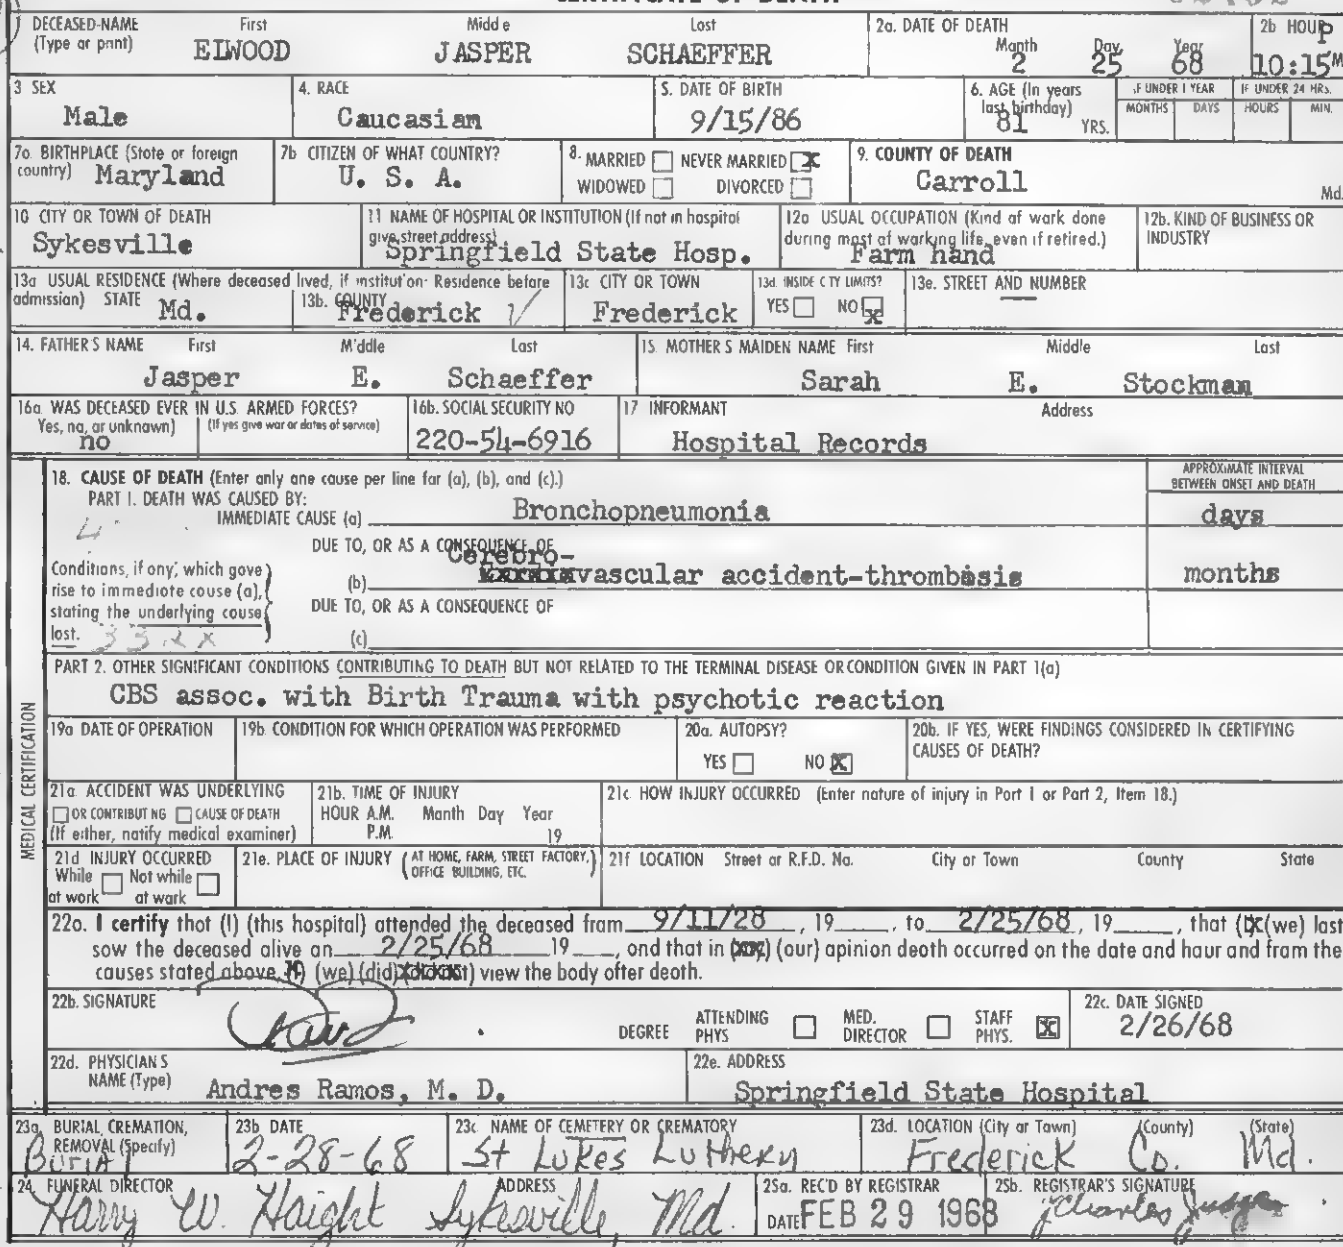 DECEASED-NAME First Middle Last
(Type or print) ELWOOD JASPER SCHAEFFER
2a. DATE OF DEATH
Month Day Year
2 25 68
2b HOUR P
10:15 M
3 SEX
Male
4. RACE
Caucasian
5. DATE OF BIRTH
9/15/86
6. AGE (In years
last birthday)
81 YRS.
IF UNDER 1 YEAR
MONTHS DAYS
IF UNDER 24 HRS.
HOURS MIN.
7a. BIRTHPLACE (State or foreign
country) Maryland
7b CITIZEN OF WHAT COUNTRY?
U. S. A.
8. MARRIED NEVER MARRIED X
WIDOWED DIVORCED
9. COUNTY OF DEATH
Carroll
Md.
10 CITY OR TOWN OF DEATH
Sykesville
11 NAME OF HOSPITAL OR INSTITUTION (If not in hospital
give street address)
Springfield State Hosp.
12a USUAL OCCUPATION (Kind of work done
during most of working life, even if retired.)
Farm hand
12b. KIND OF BUSINESS OR
INDUSTRY
13a USUAL RESIDENCE (Where deceased lived, if institution- Residence before
admission) STATE Md.
13b. COUNTY
Frederick
13c CITY OR TOWN
Frederick
13d. INSIDE CITY LIMITS?
YES NO X
13e. STREET AND NUMBER
14. FATHER'S NAME First Middle Last
Jasper E. Schaeffer
15. MOTHER'S MAIDEN NAME First Middle Last
Sarah E. Stockman
16a. WAS DECEASED EVER IN U.S. ARMED FORCES?
Yes, no, or unknown) (If yes give war or dates of service)
no
16b. SOCIAL SECURITY NO
220-54-6916
17 INFORMANT Address
Hospital Records
18. CAUSE OF DEATH (Enter only one cause per line for (a), (b), and (c).)
APPROXIMATE INTERVAL
BETWEEN ONSET AND DEATH
PART I. DEATH WAS CAUSED BY:
IMMEDIATE CAUSE (a) Bronchopneumonia days
DUE TO, OR AS A CONSEQUENCE OF
Cerebro-
Conditions, if any, which gave
rise to immediate cause (a),
stating the underlying cause
last.
(b) vascular accident-thrombosis months
DUE TO, OR AS A CONSEQUENCE OF
(c)
PART 2. OTHER SIGNIFICANT CONDITIONS CONTRIBUTING TO DEATH BUT NOT RELATED TO THE TERMINAL DISEASE OR CONDITION GIVEN IN PART 1(a)
CBS assoc. with Birth Trauma with psychotic reaction
MEDICAL CERTIFICATION
19a DATE OF OPERATION
19b. CONDITION FOR WHICH OPERATION WAS PERFORMED
20a. AUTOPSY?
YES NO X
20b. IF YES, WERE FINDINGS CONSIDERED IN CERTIFYING
CAUSES OF DEATH?
21a. ACCIDENT WAS UNDERLYING
OR CONTRIBUTING CAUSE OF DEATH
(If either, notify medical examiner)
21b. TIME OF INJURY
HOUR A.M. Month Day Year
P.M. 19
21c HOW INJURY OCCURRED (Enter nature of injury in Part 1 or Part 2, Item 18.)
21d INJURY OCCURRED
While Not while
at work at work
21e. PLACE OF INJURY (AT HOME, FARM, STREET FACTORY,
OFFICE BUILDING, ETC.)
21f LOCATION Street or R.F.D. No. City or Town County State
22a. I certify that (I) (this hospital) attended the deceased from 9/11/28, 19 , to 2/25/68, 19 , that (I) (we) last
saw the deceased alive on 2/25/68 19 , and that in (my) (our) opinion death occurred on the date and hour and from the
causes stated above, (I) (we) (did) (did not) view the body after death.
22b. SIGNATURE
DEGREE
ATTENDING
PHYS
MED.
DIRECTOR
STAFF
PHYS. X
22c. DATE SIGNED
2/26/68
22d. PHYSICIAN'S
NAME (Type) Andres Ramos, M. D.
22e. ADDRESS
Springfield State Hospital
23a. BURIAL, CREMATION,
REMOVAL (Specify)
Burial
23b DATE
2-28-68
23c NAME OF CEMETERY OR CREMATORY
St Lukes Luthern
23d. LOCATION (City or Town) (County) (State)
Frederick Co. Md.
24 FUNERAL DIRECTOR ADDRESS
Harry W. Haight Sykesville, Md.
25a. REC'D BY REGISTRAR
DATE FEB 29 1968
25b. REGISTRAR'S SIGNATURE
Charles Judge